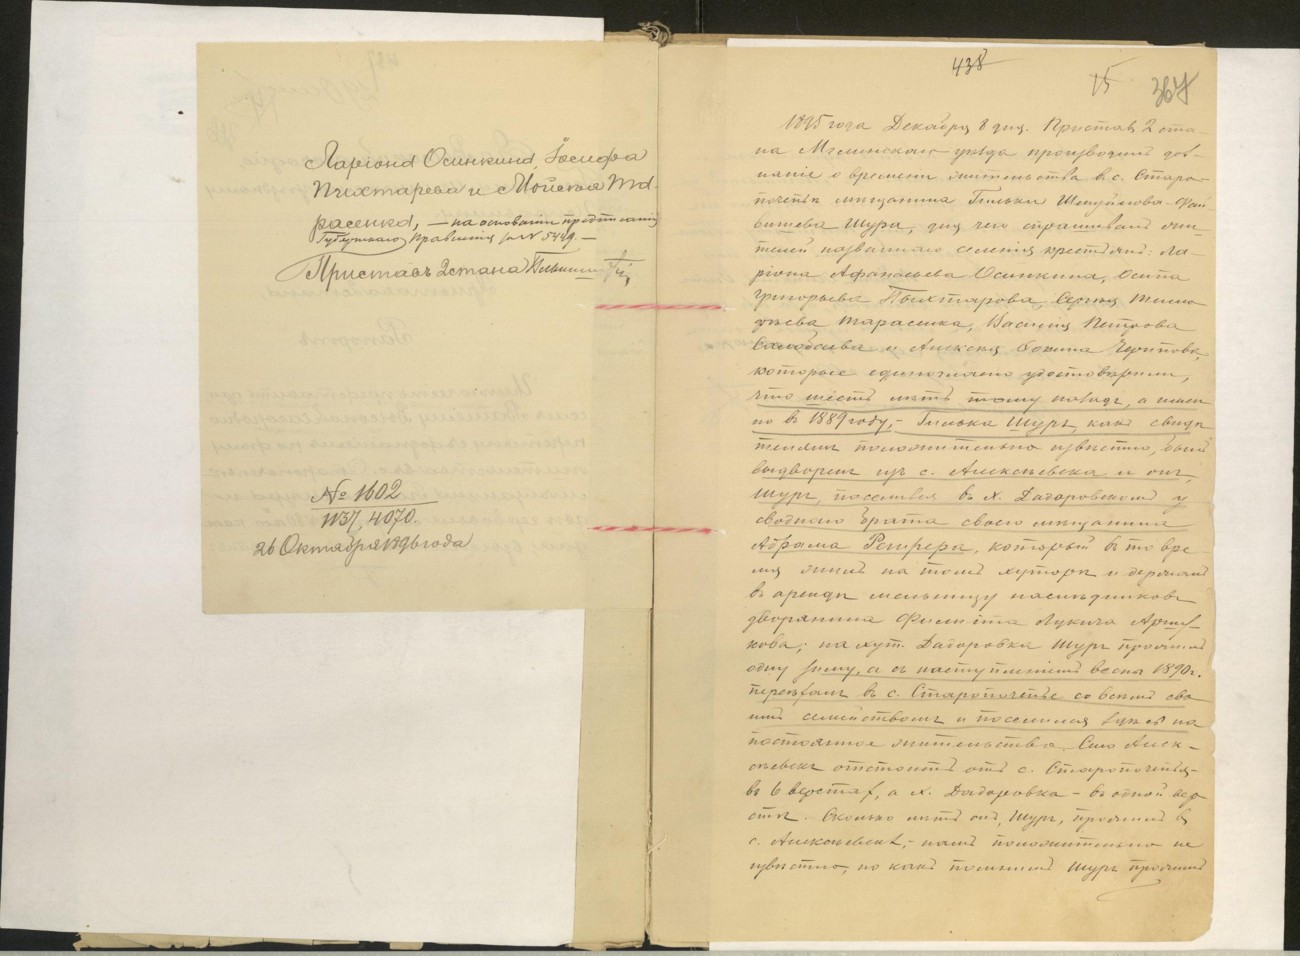 Ларіона Осинкина, Іосифа
Пыхтарева и Моисея Та-
расенко, — на основаніи предписанія
Губернскаго Правленія за № 5449. —
Приставъ 2 стана
№ 1602
1137/4070.
26 Октября 1896 года
438
15 367
1895 года Декабря 8 дня. Приставъ 2 ста-
на Мглинскаго уѣзда производилъ доз-
наніе о времени жительства в с. Старо-
почепьи мѣщанина Гильки Шмуйлова-Фай-
вишева Шура, для чего спрашивалъ жи-
телей названнаго селенія крестьянъ: Ла-
ріона Афанасьева Осинкина, Осипа
Григорьева Пыхтарова, Сергѣя Тимо-
фѣева Тарасенка, Василія Петрова
и Алексѣя
которые единогласно удостовѣрили,
что шесть лѣтъ тому назадъ, а имен-
но въ 1889 году, — Гилька Шуръ, какъ свидѣ-
телямъ положительно извѣстно, былъ
выдворенъ изъ с. Алексѣевска и онъ,
Шуръ, поселился въ х. Дадоровскомъ у
своднаго брата своего мѣщанина
Абрама, который въ то вре-
мя жилъ на томъ хуторѣ и держалъ
въ арендѣ мельницу наслѣдниковъ
дворянина Филипа Лукича
кова; на хут. Дадоровка Шуръ прожилъ
одну зиму, а съ наступленіемъ весны 1890 г.
переѣхалъ въ с. Старопочепье со всѣмъ сво-
имъ семействомъ и поселился уже на
постоянное жительство. Село Алек-
сѣевскъ отстоитъ отъ с. Старопочепья-
въ 6 верстахъ, а х. Дадоровка - въ одной вер-
стѣ. Сколько лѣтъ онъ, Шуръ, прожилъ въ
с. Алексѣевскѣ, - намъ положительно не
извѣстно, но какъ помнимъ Шуръ прожилъ